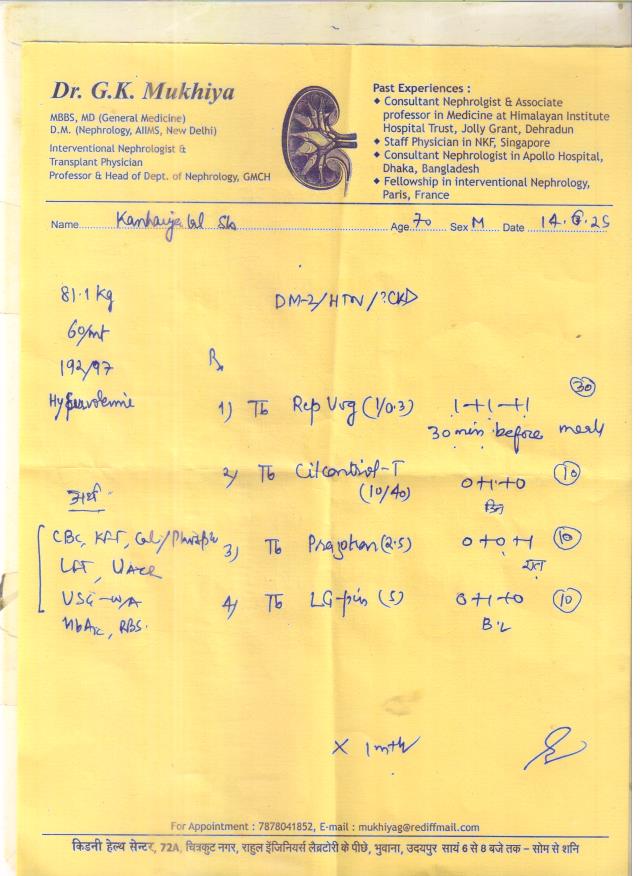 Dr. G.K. Mukhiya
MBBS, MD (General Medicine)
D.M. (Nephrology, AIIMS, New Delhi)
Interventional Nephrologist &
Transplant Physician
Professor & Head of Dept. of Nephrology, GMCH
Past Experiences :
◆ Consultant Nephrolgist & Associate
professor in Medicine at Himalayan Institute
Hospital Trust, Jolly Grant, Dehradun
◆ Staff Physician in NKF, Singapore
◆ Consultant Nephrologist in Apollo Hospital,
Dhaka, Bangladesh
◆ Fellowship in interventional Nephrology,
Paris, France
Name Age 70 Sex M Date 14.6.25
81.1 kg
DM-2/HTN/?CKD
60/mt
192/97
Rx
30
1) Tb (1/0.3) 1+1+1
30 min before meal
2) Tb Cilcontrol-T 0+1+0 10
(10/40)
दिन
CBC, KFT,
LFT,
USG
HbA1c, RBS.
3) Tb (2.5) 0+0+1 10
रात
4) Tb (5) 0+1+0 10
X 1 mth
For Appointment : 7878041852, E-mail : mukhiyag@rediffmail.com
किडनी हेल्थ सेन्टर, 72A, चित्रकुट नगर, राहुल इंजिनियर्स लैब्रटोरी के पीछे, भुवाना, उदयपुर सायं 6 से 8 बजे तक – सोम से शनि